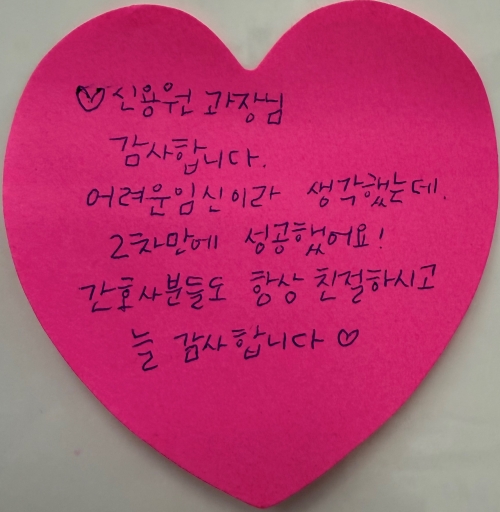 ♡신용원 과장님
감사합니다.
어려운임신이라 생각했는데.
2차만에 성공했어요!
간호사분들도 항상 친절하시고
늘 감사합니다 ♡